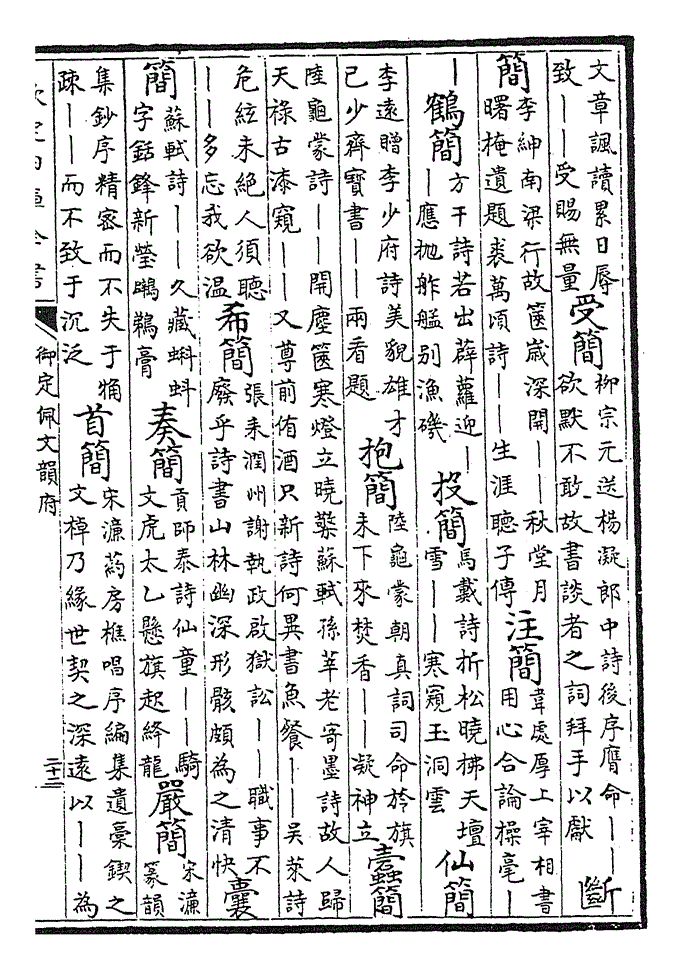 文章諷讀累日辱
致——受賜無量
受簡
柳宗元送楊凝郎中詩後序膺命——
欲默不敢故書談者之詞拜手以獻
斷
簡
李紳南梁行故篋歲深開——秋堂月
曙掩遺題裘萬頃詩——生涯聽子傳
注簡
韋處厚上宰相書
用心合論操毫—
—
鶴簡
方干詩若出薜蘿迎—
—應抛舴艋别漁磯
投簡
馬戴詩折松曉拂天壇
雪——寒窺玉洞雲
仙簡
李遠贈李少府詩美貌雄才
已少齊寳書——兩看題
抱簡
陸龜蒙朝真詞司命於旗
未下來焚香——凝神立
蠹簡
陸龜蒙詩——開塵篋寒燈立曉檠蘇軾孫莘老寄墨詩故人歸
天祿古漆窺——又尊前侑酒只新詩何異書魚餐——吳萊詩
危絃未絶人須聽
——多忘我欲温
希簡
張耒潤州謝執政啟獄訟——職事不
廢乎詩書山林幽深形骸頗為之清快
囊
簡
蘇軾詩——久藏蝌蚪
字銛鋒新瑩鸊鵜膏
奏簡
貢師泰詩仙童——騎
文虎太乙懸旗起絳龍
嚴簡
宋濓
篆韻
集鈔序精密而不失于觕
疎——而不致于沉泛
首簡
宋濓葯房樵唱序編集遺稾鍥之
文梓乃緣世契之深遠以——為
欽定四庫全書
御定佩文韻府
二十二